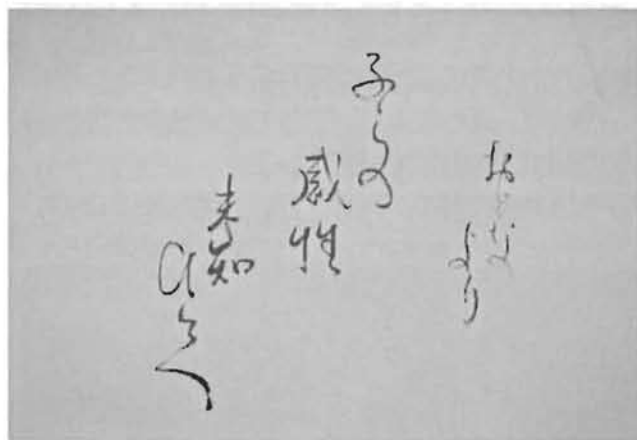 おとな
より
子らの
感性
未知
ひらく